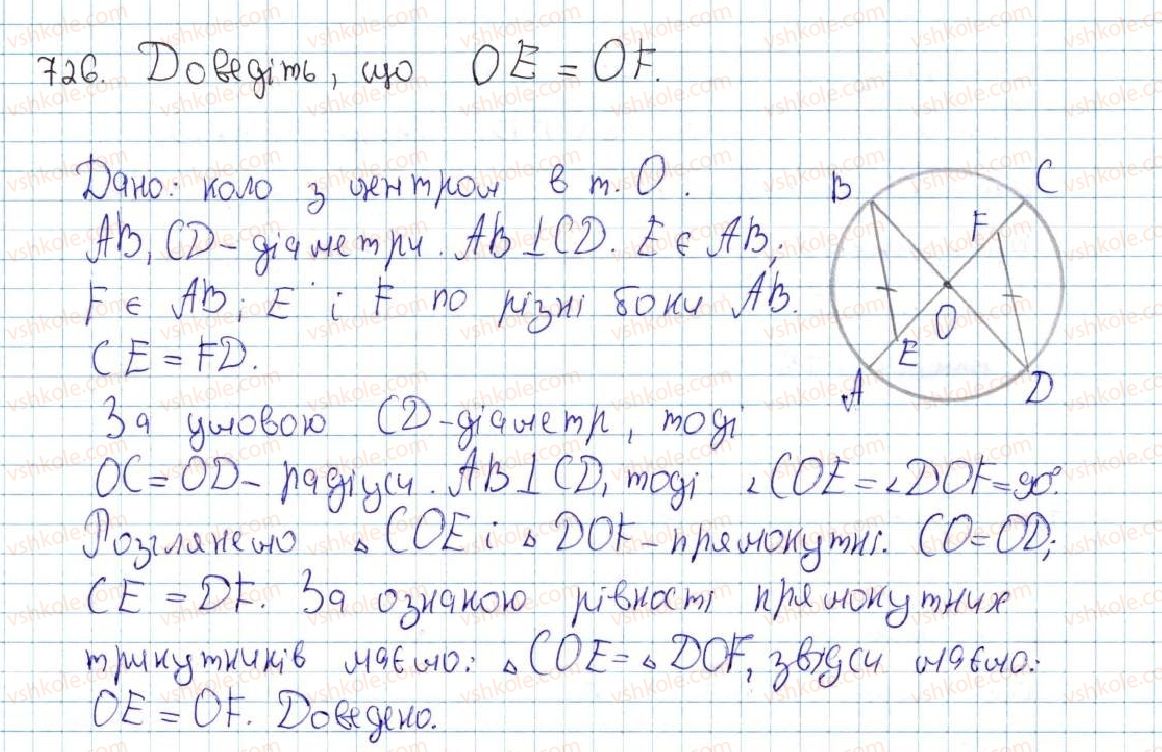 726. Доведіть, що OE = OF.
Дано: коло з центром в т. O.
AB, CD – діаметри. AB ⊥ CD. E є AB;
F є AB; E і F по різні боки AB.
CE = FD.
За умовою CD – діаметр, тоді
OC = OD – радіуси. AB ⊥ CD, тоді ∠COE = ∠DOF = 90°.
Розглянемо △COE і △DOF – прямокутні. CO = OD;
CE = DF. За ознакою рівності прямокутних
трикутників маємо: △COE = △DOF, звідси маємо:
OE = OF. Доведено.
B
C
F
O
E
A
D